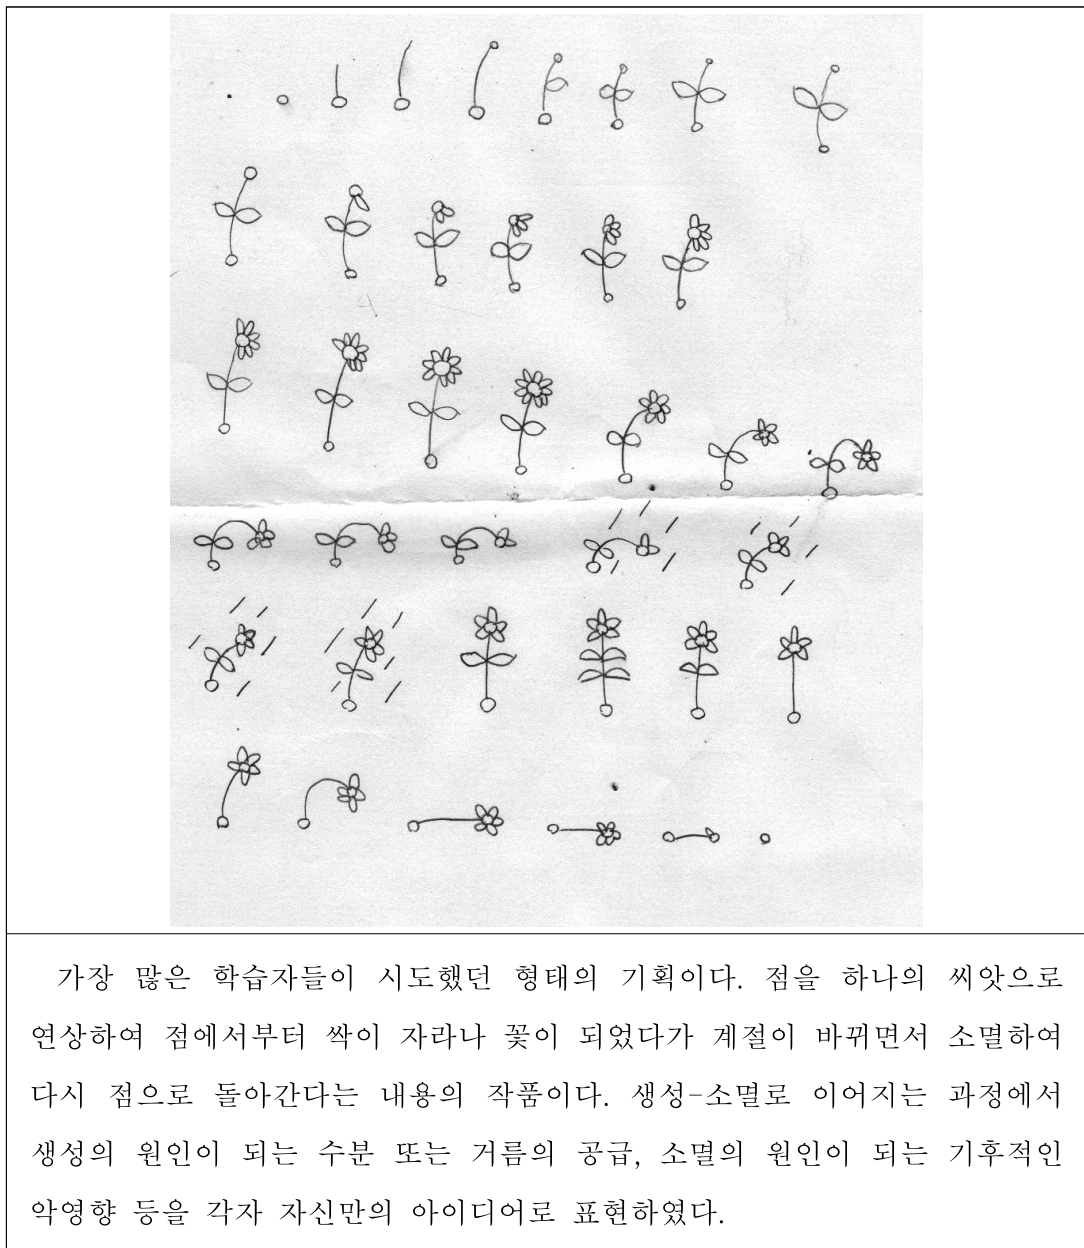 가장 많은 학습자들이 시도했던 형태의 기획이다. 점을 하나의 씨앗으로
연상하여 점에서부터 싹이 자라나 꽃이 되었다가 계절이 바뀌면서 소멸하여
다시 점으로 돌아간다는 내용의 작품이다. 생성-소멸로 이어지는 과정에서
생성의 원인이 되는 수분 또는 거름의 공급, 소멸의 원인이 되는 기후적인
악영향 등을 각자 자신만의 아이디어로 표현하였다.